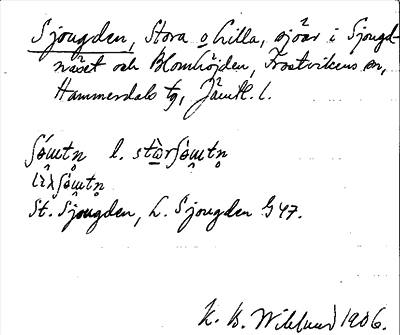 Sjougden, Stora o Lilla, sjöar i Sjougd-
näset och Blomhöjden, Frostvikens sn,
Hammerdals tg, Jämtl. l.
l.
St. Sjougden, L. Sjougden G 47.
K. B. Wiklund 1906.